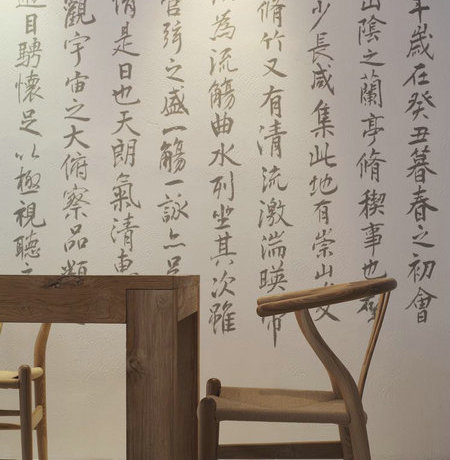 年歲在癸丑暮春之初會
山陰之蘭亭脩稧事也
少長咸集此地有崇山
脩竹又有清流激湍暎帶
為流觴曲水列坐其次雖
管弦之盛一觴一詠亦足
情是日也天朗氣清惠
觀宇宙之大俯察品類
遊目騁懷足以極視聽之